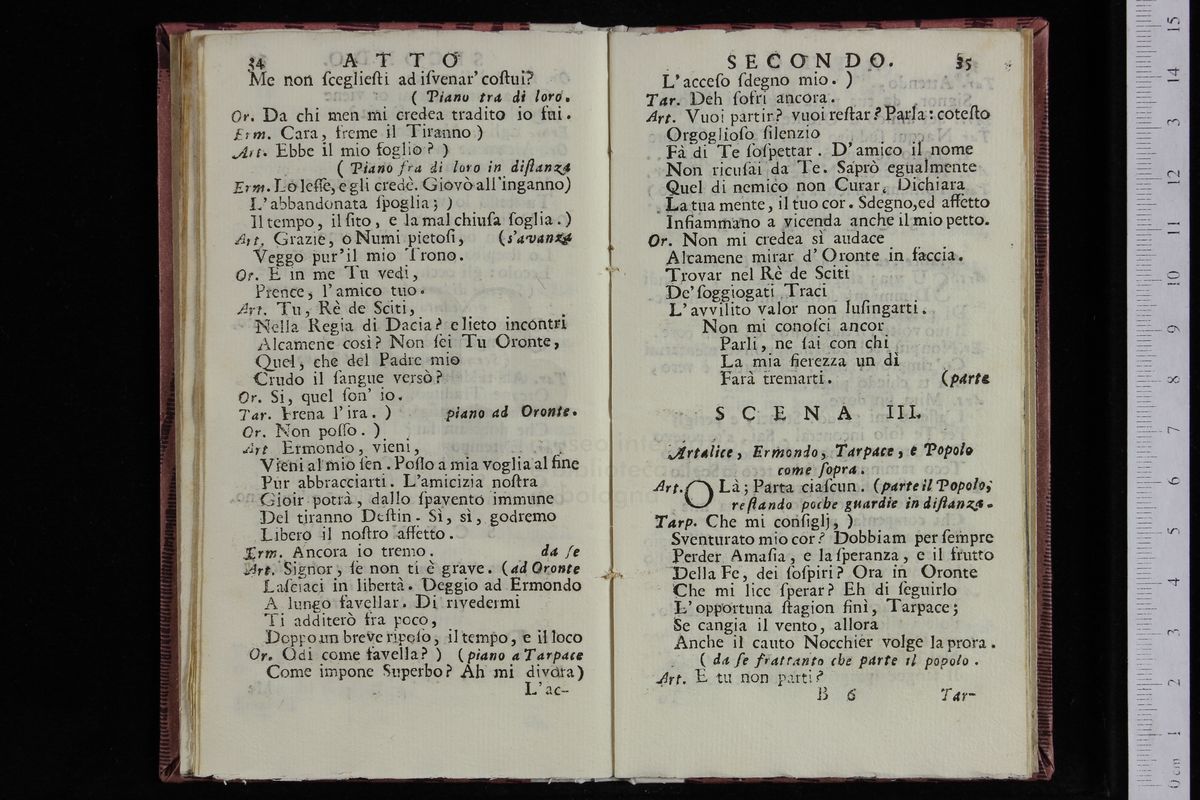 34 ATTO
Me non ſceglieſti ad iſvenar' coſtui?
( Piano tra di loro.
Or. Da chi men mi credea tradito io fui.
Erm. Cara, freme il Tiranno )
Art. Ebbe il mio foglio? )
( Piano fra di loro in diſtanza
Erm. Lo leſſe, e gli credè. Giovò all'inganno)
L'abbandonata ſpoglia; )
Il tempo, il ſito, e la mal chiuſa ſoglia.)
Art. Grazie, o Numi pietoſi, (s'avanza
Veggo pur'il mio Trono.
Or. E in me Tu vedi,
Prence, l'amico tuo.
Art. Tu, Rè de Sciti,
Nella Regia di Dacia? e lieto incontri
Alcamene così? Non ſei Tu Oronte,
Quel, che del Padre mio
Crudo il ſangue versò?
Or. Sì, quel ſon' io.
Tar. Frena l'ira. ) piano ad Oronte.
Or. Non poſſo. )
Art Ermondo, vieni,
Vieni al mio ſen. Poſſo a mia voglia al fine
Pur abbracciarti. L'amicizia noſtra
Gioir potrà, dallo ſpavento immune
Del tiranno Deſtin. Sì, sì, godremo
Libero il noſtro affetto.
Erm. Ancora io tremo. da ſe
Art. Signor, ſe non ti è grave. (ad Oronte
Laſciaci in libertà. Deggio ad Ermondo
A lungo favellar. Di rivedermi
Ti additerò fra poco,
Doppo un breve ripoſo, il tempo, e il loco
Or. Odi come favella? ) (piano a Tarpace
Come impone Superbo? Ah mi divora)
L'ac-
SECONDO. 35
L'acceſo ſdegno mio. )
Tar. Deh ſofri ancora.
Art. Vuoi partir? vuoi reſtar? Parla: coteſto
Orgoglioſo ſilenzio
Fà di Te ſoſpettar. D'amico il nome
Non ricuſai da Te. Saprò egualmente
Quel di nemico non Curar. Dichiara
La tua mente, il tuo cor. Sdegno, ed affetto
Infiammano a vicenda anche il mio petto.
Or. Non mi credea sì audace
Alcamene mirar d'Oronte in faccia.
Trovar nel Rè de Sciti
De' ſoggiogati Traci
L'avvilito valor non luſingarti.
Non mi conoſci ancor
Parli, ne ſai con chi
La mia fierezza un dì
Farà tremarti. (parte
SCENA III.
Artalice, Ermondo, Tarpace, e Popolo
come ſopra.
Art. OLà; Parta ciaſcun. (parte il Popolo,
reſtando poche guardie in diſtanza.
Tarp. Che mi conſiglj, )
Sventurato mio cor? Dobbiam per ſempre
Perder Amaſia, e la ſperanza, e il frutto
Della Fe, dei ſoſpiri? Ora in Oronte
Che mi lice ſperar? Eh di ſeguirlo
L'opportuna ſtagion finì, Tarpace;
Se cangia il vento, allora
Anche il cauto Nocchier volge la prora.
( da ſe frattanto che parte il popolo.
Art. E tu non parti?
B 6 Tar-